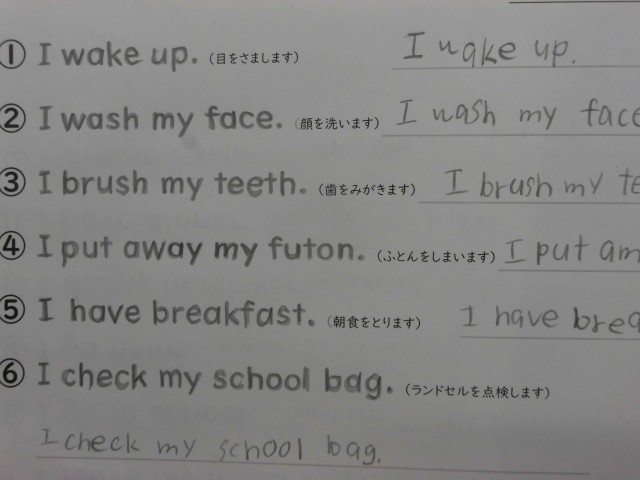 ① I wake up. (目をさまします) I wake up.
② I wash my face. (顔を洗います) I wash my face
③ I brush my teeth. (歯をみがきます) I brush my te
④ I put away my futon. (ふとんをしまいます) I put am
⑤ I have breakfast. (朝食をとります) I have brea
⑥ I check my school bag. (ランドセルを点検します)
I check my school bag.